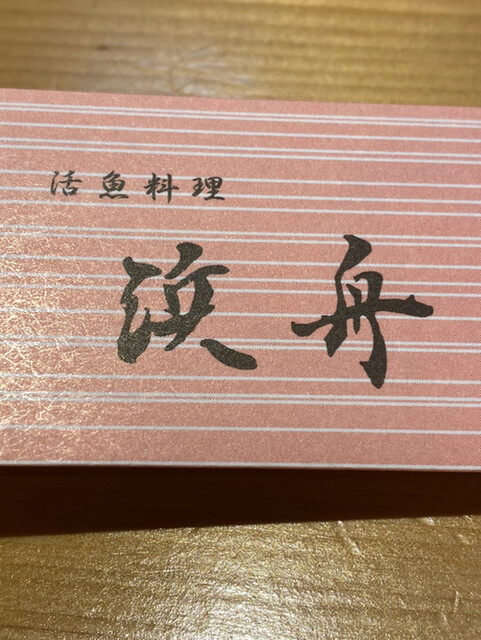 活魚料理
浜舟